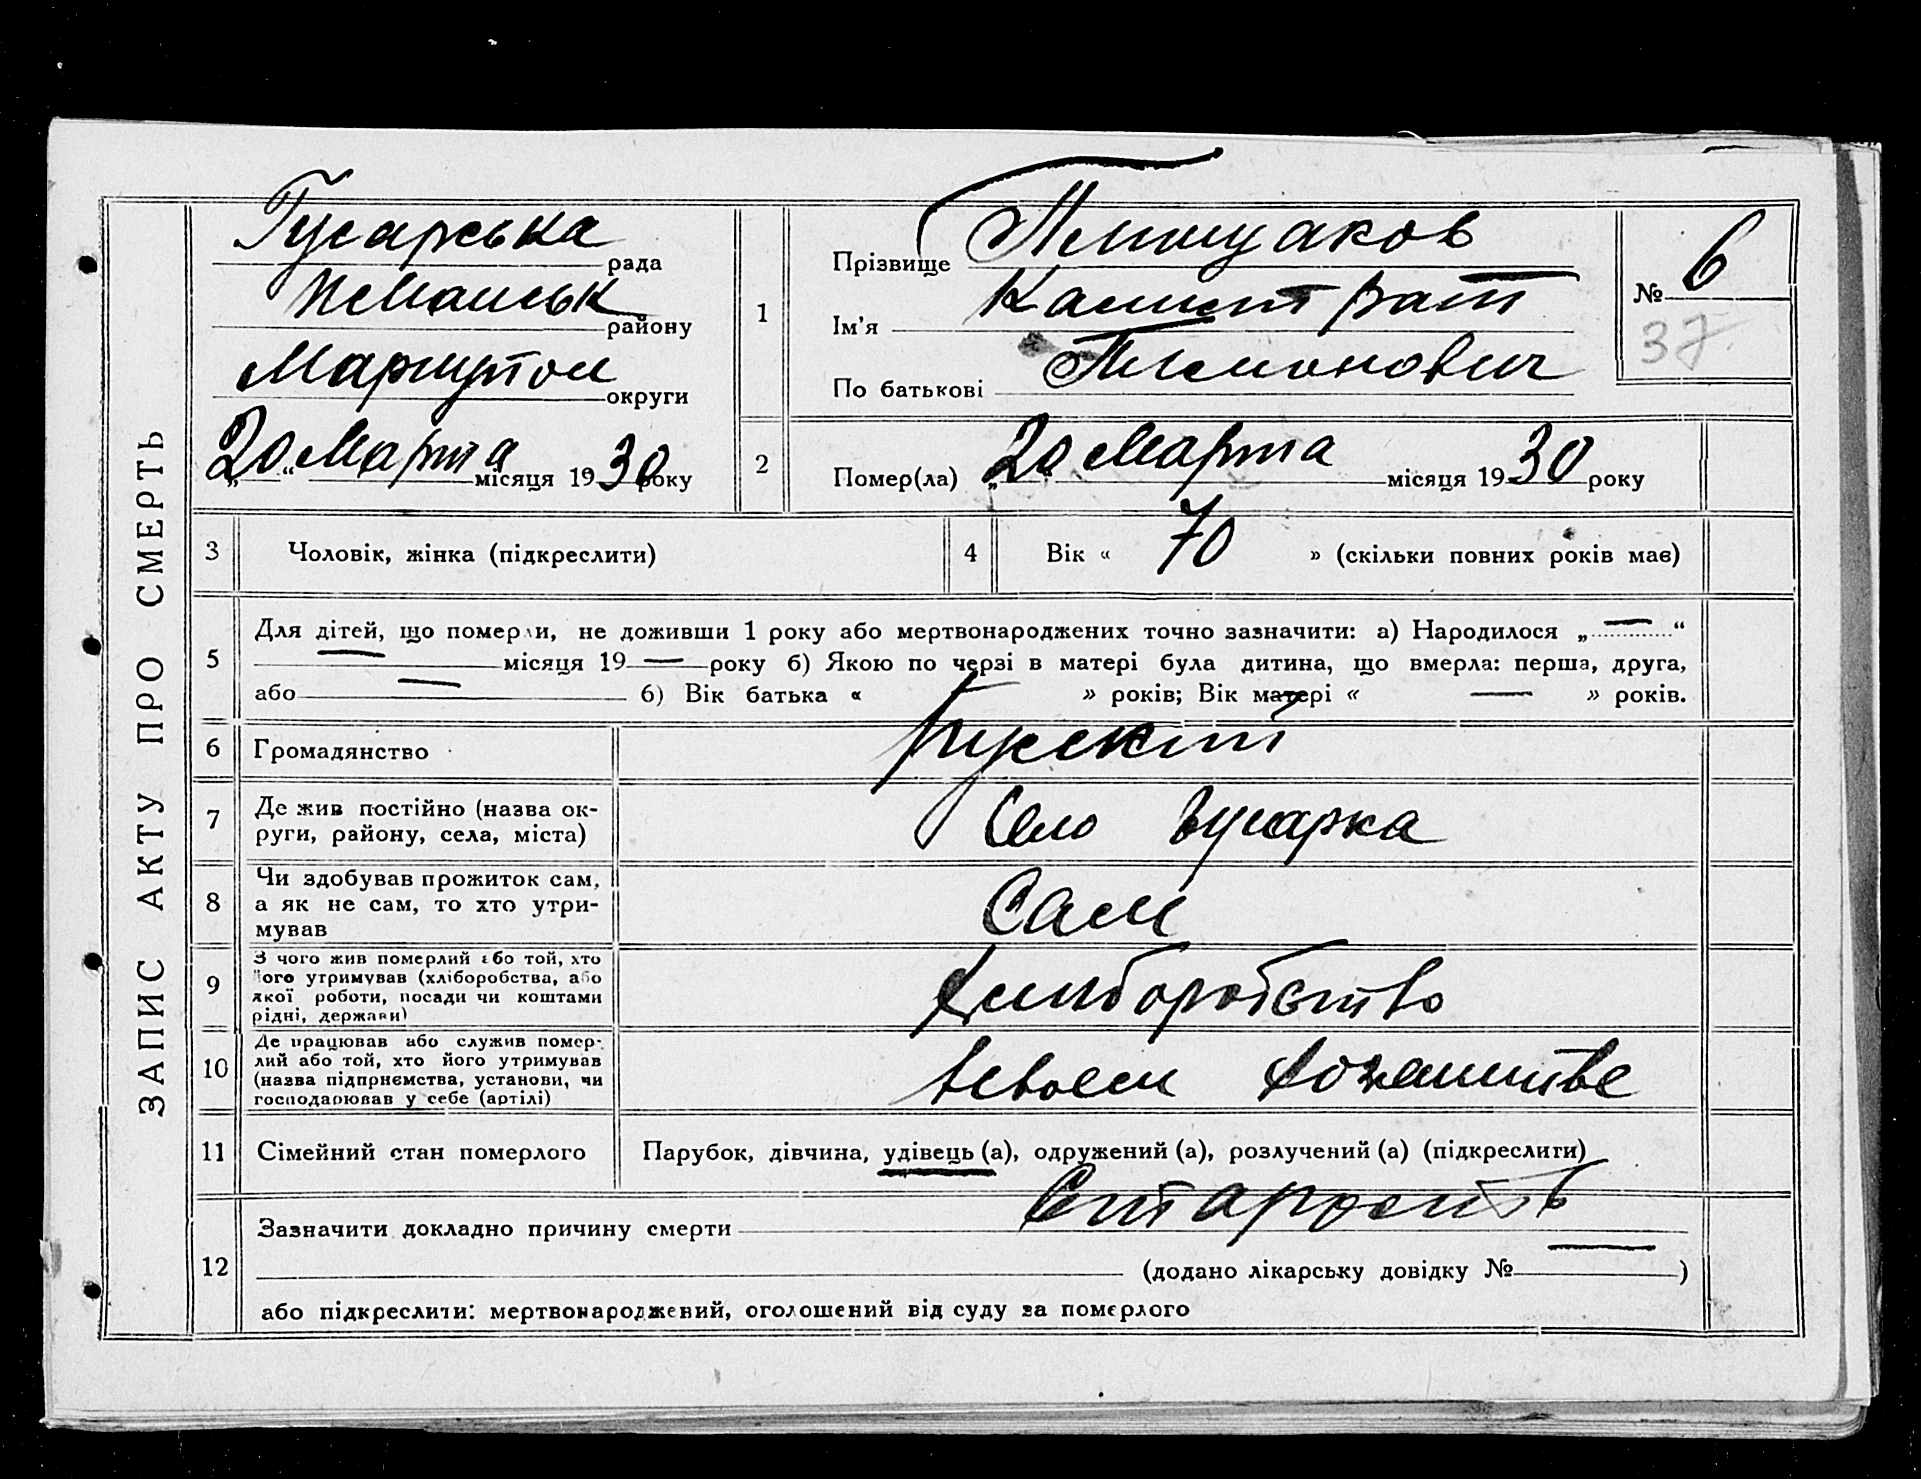 ЗАПИС АКТУ ПРО СМЕРТЬ
Гусарська рада
району
Мариупол округи
„20“ Марта місяця 1930 року
1
Прізвище
Ім'я Калистрат
По батькові
№ 6
37
2
Помер(ла) „20 Марта місяця 1930 року
3 Чоловік, жінка (підкреслити)
4 Вік « 70 » (скільки повних років має)
5
Для дітей, що померли, не доживши 1 року або мертвонароджених точно зазначити: а) Народилося „ — “
— місяця 19 — року б) Якою по черзі в матері була дитина, що вмерла: перша, друга,
або — б) Вік батька « — » років; Вік матері « — » років.
6 Громадянство Руский
7
Де жив постійно (назва ок-
руги, району, села, міста)
Село Гусарка
8
Чи здобував прожиток сам,
а як не сам, то хто утри-
мував
Сам
9
З чого жив померлий або той, хто
його утримував (хліборобства, або
якої роботи, посади чи коштами
рідні, держави)
Хлиборобство
10
Де працював або служив помер-
лий або той, хто його утримував
(назва підприємства, установи, чи
господарював у себе (артілі)
всвоем хозяистве
11 Сімейний стан померлого Парубок, дівчина, удівець (а), одружений (а), розлучений (а) (підкреслити)
12
Зазначити докладно причину смерти Старость
(додано лікарську довідку № — )
або підкреслити: мертвонароджений, оголошений від суду за померлого